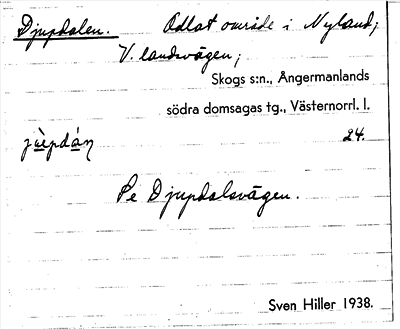 Djupdalen. Odlat område i Nyland;
V. landsvägen;
Skogs s:n., Ångermanlands
södra domsagas tg., Västernorrl. l.
jùpdáɳ 24.
Se Djupdalsvägen.
Sven Hiller 1938.